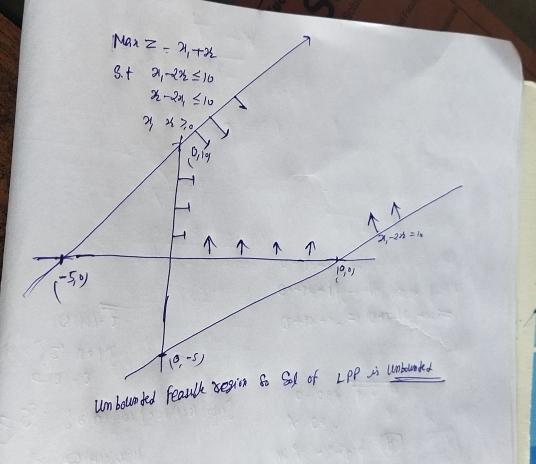 Max Z = x₁+x₂
S.t x₁-2x₂ ≤ 10
x₂-2x₁ ≤ 10
x₁ x₂ ≥ 0
(0,10)
x₁-2x₂ = 10
(-5,0)
(10,0)
(0,-5)
Unbounded feasible region so Sol of LPP is Unbounded